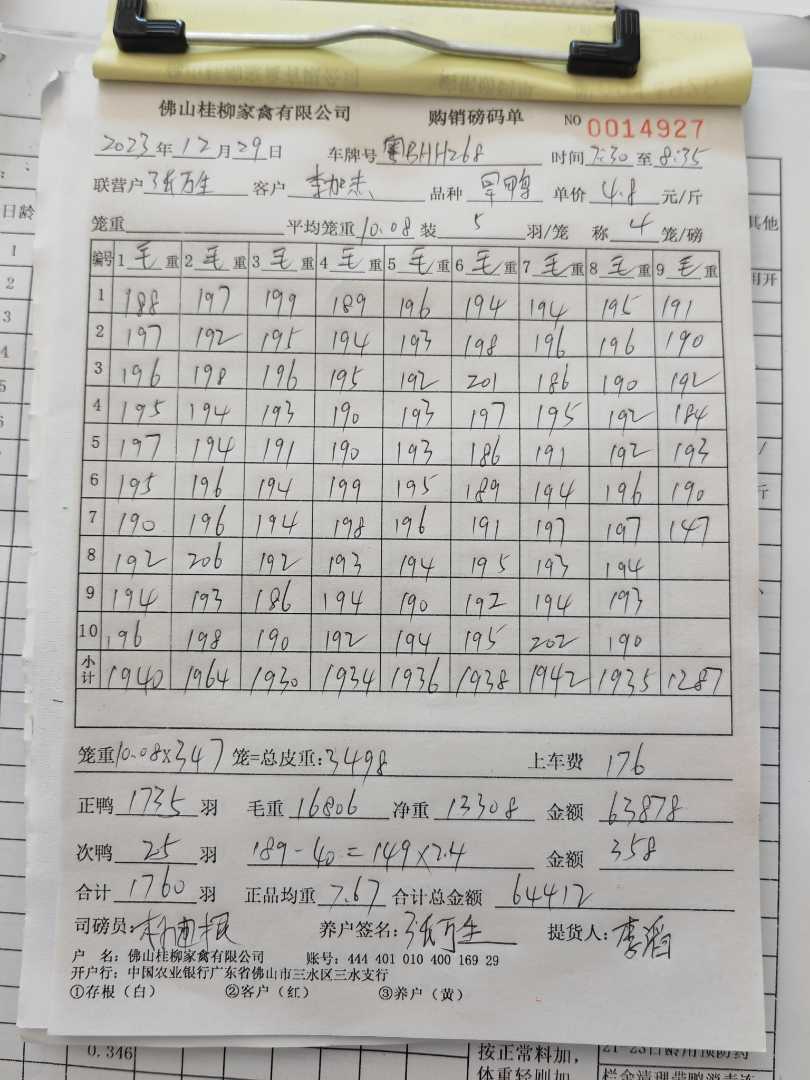 佛山桂柳家禽有限公司 购销磅码单 NO 0014927
2023年12月29日 车牌号 粤BHH268 时间 7:30 至 8:35
联营户 张万生 客户 品种 单价 4.8 元/斤
笼重 平均笼重 10.08 装 5 羽/笼 称 4 笼/磅
编号 1 毛 重 2 毛 重 3 毛 重 4 毛 重 5 毛 重 6 毛 重 7 毛 重 8 毛 重 9 毛 重
1 188 197 199 189 196 194 194 195 191
2 197 192 195 194 193 198 196 196 190
3 196 198 196 195 192 201 186 190 192
4 195 194 193 190 193 197 195 192 184
5 197 194 191 190 193 186 191 192 193
6 195 196 194 199 195 189 194 196 190
7 190 196 194 198 196 191 197 197 147
8 192 206 192 193 194 195 193 194
9 194 193 186 194 190 192 194 193
10 196 198 190 192 194 195 202 190
小计 1940 1964 1930 1934 1936 1938 1942 1935 1287
笼重 10.08×347 笼=总皮重: 3498 上车费 176
正鸭 1735 羽 毛重 16806 净重 13308 金额 63878
次鸭 25 羽 189-40=149×2.4 金额 358
合计 1760 羽 正品均重 7.67 合计总金额 64412
司磅员: 养户签名: 张万生 提货人: 李滔
户 名: 佛山桂柳家禽有限公司 账号: 444 401 010 400 169 29
开户行: 中国农业银行广东省佛山市三水区三水支行
①存根（白） ②客户（红） ③养户（黄）
日龄
1
2
3
4
5
其他
用开
斤
0.346
按正常料加,
体重轻则加
21-23日龄用预防药